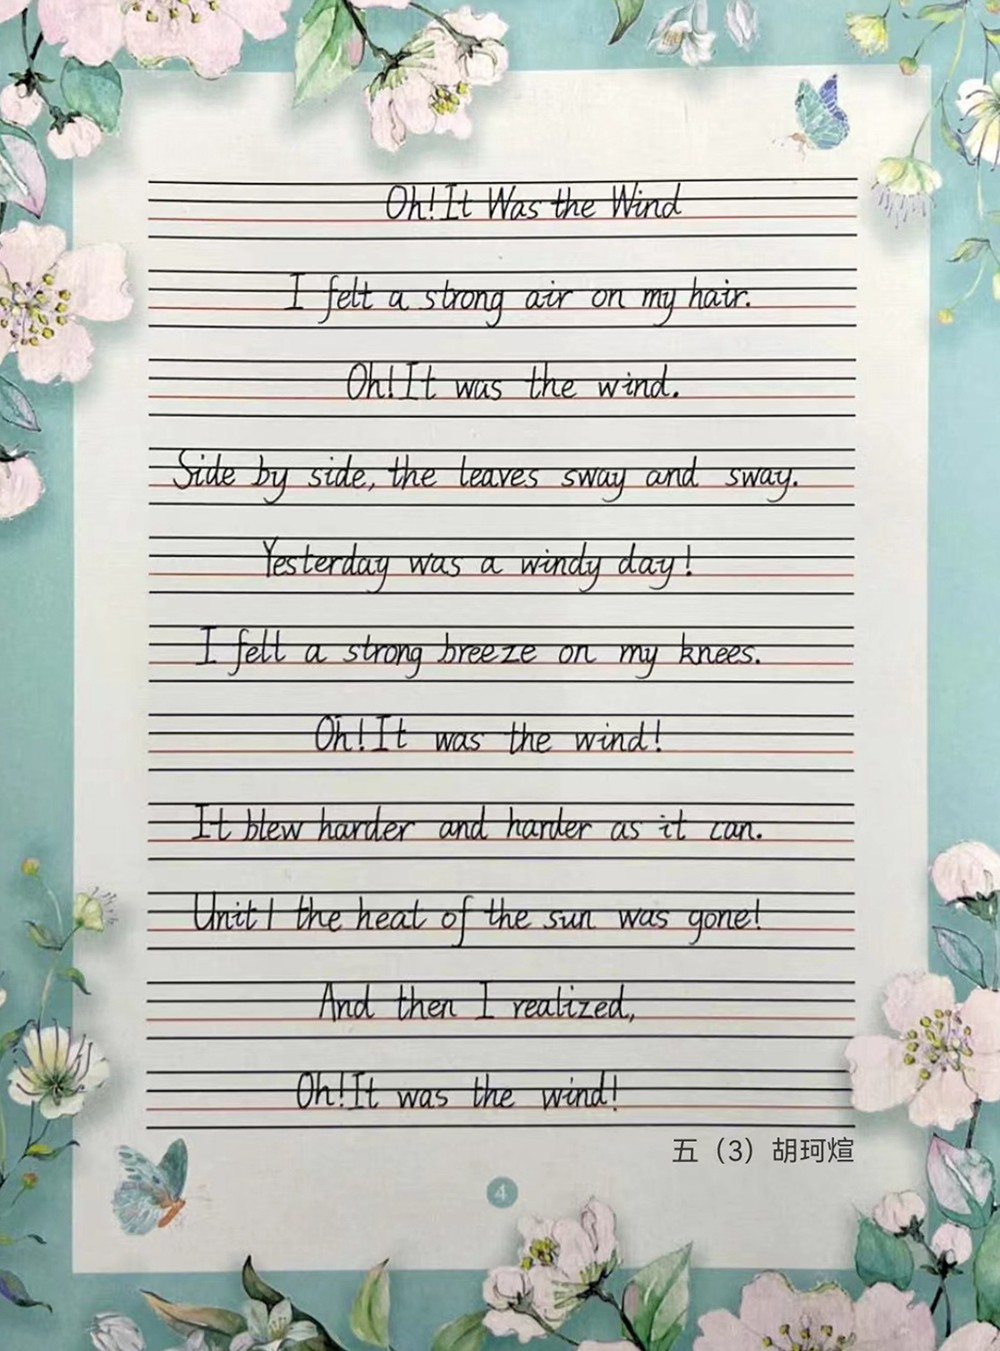 Oh! It Was the Wind
I felt a strong air on my hair.
Oh! It was the wind.
Side by side, the leaves sway and sway.
Yesterday was a windy day!
I felt a strong breeze on my knees.
Oh! It was the wind!
It blew harder and harder as it can.
Unitl the heat of the sun was gone!
And then I realized,
Oh! It was the wind!
五（3）胡珂煊
4